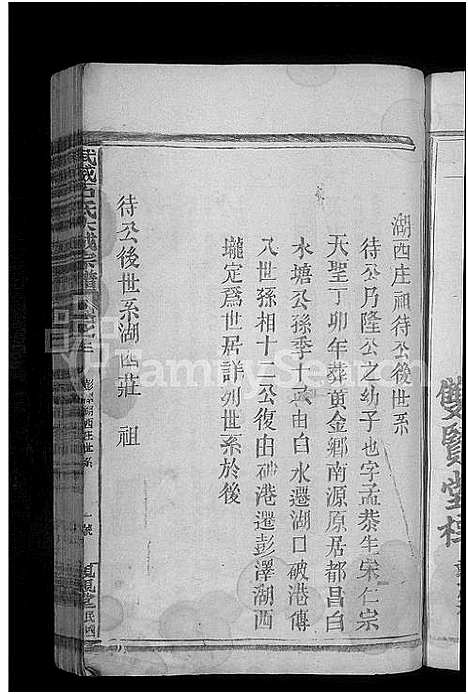 雙賢堂
湖西庄祖待公後世系
待公乃隆公之幼子也字孟恭生宋仁宗
天聖丁卯年葬黄金鄉南源原居都昌白
水塘公孫季十 公由白水遷湖口破港傳
八世孫相十二公復由破港遷彭澤湖西
壠定爲世居詳列世系於後
待公後世系湖西莊 祖
武威石氏大成宗譜
彭澤湖西庄世系
一號
民國
FamilySearch